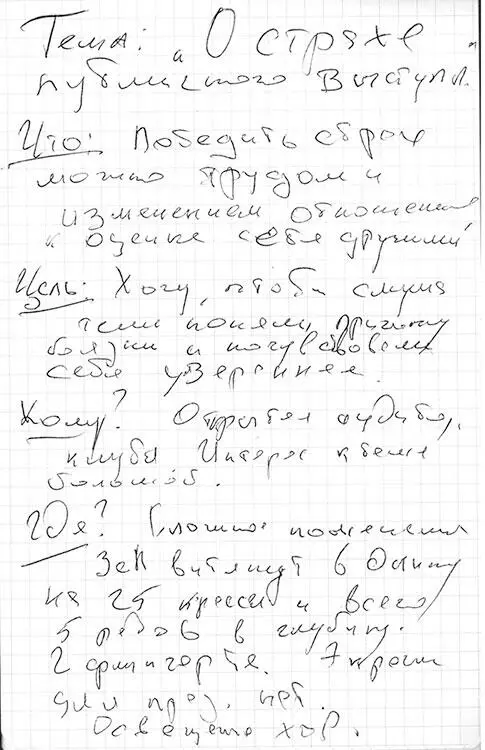 Тема: „О страхе
публичного выступл."
Что: Победить страх
можно трудом и
изменением отношения
к оценке себя другими
Цель: Хочу, чтобы слуша
тели поняли причину
боязни и почувствовали
себя увереннее.
Кому? Открытая
клуба Интерес к теме
большой.
Где? Сложное помещение
Зал вытянут в длину
на 25 кресел и всего
5 рядов в глубину.
2 флипчарта. Экрана
для през. нет.
Освещение хор.